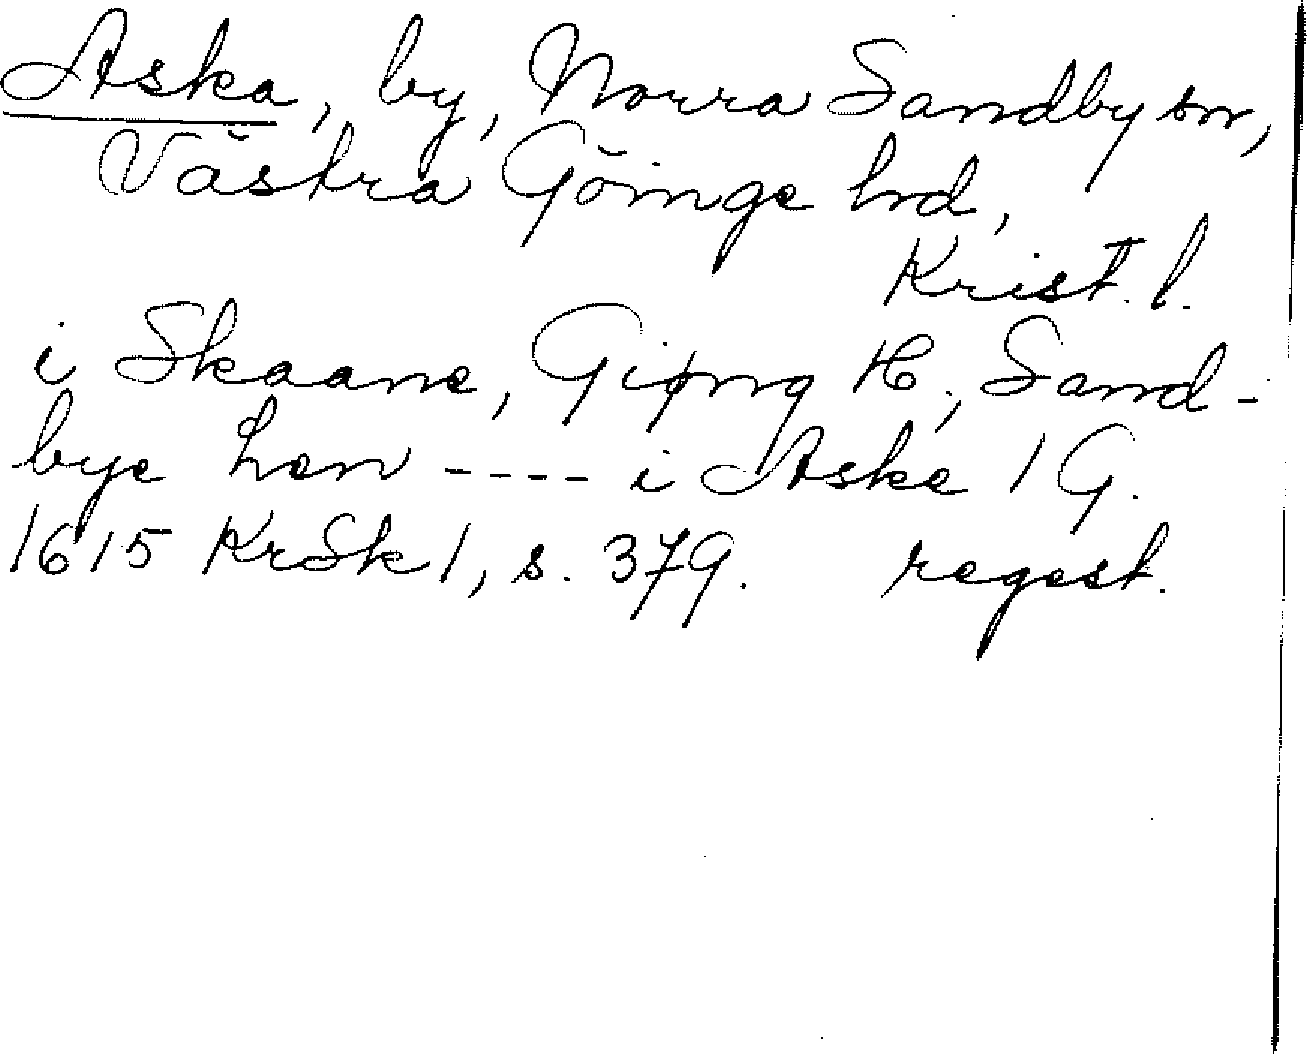 Aska, by, Norra Sandby sn,
Västra Göinge hrd,
Krist. l.
i Skaane, Giøng H., Sand-
bye Len ---- i Aske 1 G.
1615 KrSk 1, s. 379. regest.